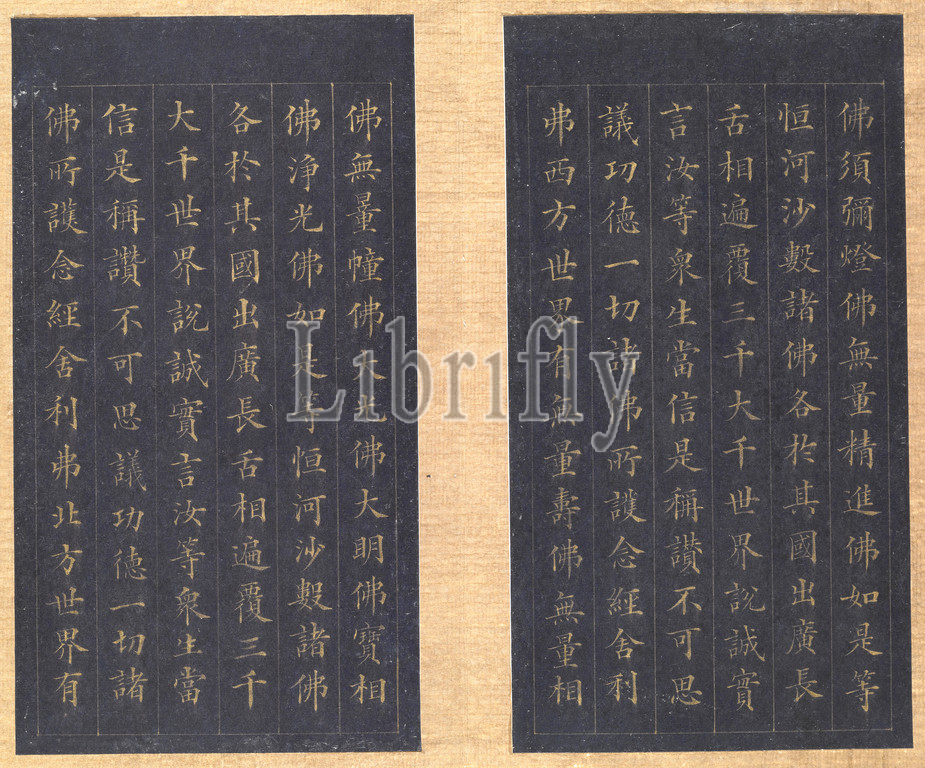 佛須彌燈佛無量精進佛如是等
恒河沙數諸佛各於其國出廣長
舌相遍覆三千大千世界說誠實
言汝等衆生當信是稱讃不可思
議功德一切諸佛所護念經舍利
弗西方世界有無量壽佛無量相
佛無量幢佛大光佛大明佛寶相
佛淨光佛如是等恒河沙數諸佛
各於其國出廣長舌相遍覆三千
大千世界說誠實言汝等衆生當
信是稱讃不可思議功德一切諸
佛所護念經舍利弗北方世界有
Librifly